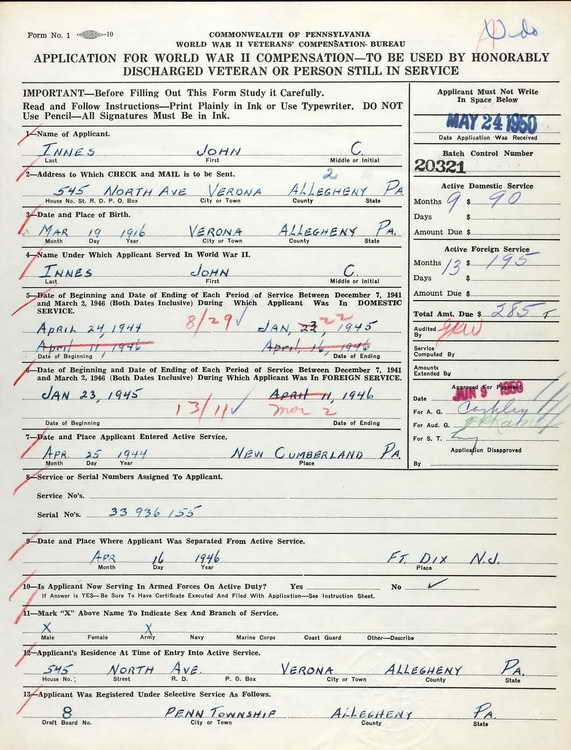 Form No. 1 -10
COMMONWEALTH OF PENNSYLVANIA
WORLD WAR II VETERANS' COMPENSATION BUREAU
APPLICATION FOR WORLD WAR II COMPENSATION—TO BE USED BY HONORABLY
DISCHARGED VETERAN OR PERSON STILL IN SERVICE
IMPORTANT—Before Filling Out This Form Study it Carefully.
Read and Follow Instructions—Print Plainly in Ink or Use Typewriter. DO NOT
Use Pencil—All Signatures Must Be in Ink.
1—Name of Applicant.
INNES JOHN C.
Last First Middle or Initial
2—Address to Which CHECK and MAIL is to be Sent. 2
545 NORTH AVE VERONA ALLEGHENY PA
House No. St. R. D. P. O. Box City or Town County State
3—Date and Place of Birth.
MAR 19 1916 VERONA ALLEGHENY PA.
Month Day Year City or Town County State
4—Name Under Which Applicant Served In World War II.
INNES JOHN C.
Last First Middle or Initial
5—Date of Beginning and Date of Ending of Each Period of Service Between December 7, 1941
and March 2, 1946 (Both Dates Inclusive) During Which Applicant Was In DOMESTIC
SERVICE.
APRIL 24, 1944 8/29 JAN, 22, 1945
April 11, 1946 April, 16, 1946
Date of Beginning Date of Ending
6—Date of Beginning and Date of Ending of Each Period of Service Between December 7, 1941
and March 2, 1946 (Both Dates Inclusive) During Which Applicant Was In FOREIGN SERVICE.
JAN 23, 1945 April 11, 1946
13/11 Mar 2
Date of Beginning Date of Ending
7—Date and Place Applicant Entered Active Service.
APR 25 1944 NEW CUMBERLAND PA
Month Day Year Place
8—Service or Serial Numbers Assigned To Applicant.
Service No's.
Serial No's. 33 936 155
9—Date and Place Where Applicant Was Separated From Active Service.
APR 16 1946 FT. DIX N.J.
Month Day Year Place
10—Is Applicant Now Serving In Armed Forces On Active Duty? Yes No ✓
If Answer is YES—Be Sure To Have Certificate Executed And Filed With Application—See Instruction Sheet.
11—Mark "X" Above Name To Indicate Sex And Branch of Service.
X X
Male Female Army Navy Marine Corps Coast Guard Other—Describe
12—Applicant's Residence At Time of Entry Into Active Service.
545 NORTH AVE. VERONA ALLEGHENY PA.
House No. Street R. D. P. O. Box City or Town County State
13—Applicant Was Registered Under Selective Service As Follows.
8 PENN TOWNSHIP ALLEGHENY PA.
Draft Board No. City or Town County State
Applicant Must Not Write
In Space Below
MAY 24 1950
Date Application Was Received
Batch Control Number
20321
Active Domestic Service
Months 9 $ 90
Days $
Amount Due $
Active Foreign Service
Months 13 $ 195
Days $
Amount Due $
Total Amt. Due $ 285
Audited
By
Service
Computed By
Amounts
Extended By
Approved For Payment
Date JUN 9 1950
For A. G.
For Aud. G.
For S. T.
Application Disapproved
By